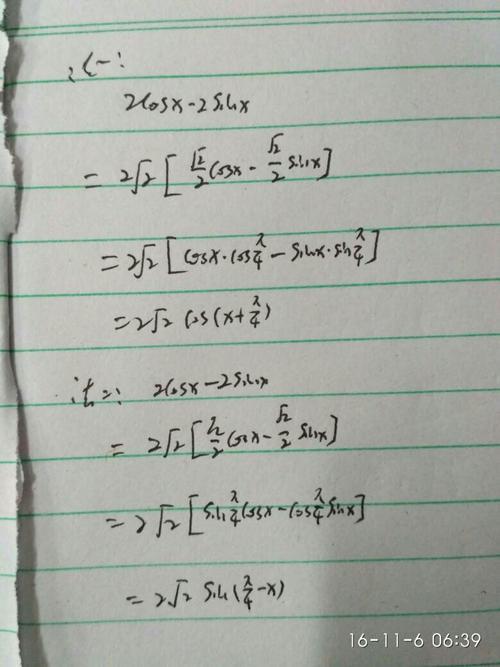 法一:
2cosx-2sinx
= 2√2 [ √2/2 cosx - √2/2 sinx ]
= 2√2 [ cosx·cos π/4 - sinx·sin π/4 ]
= 2√2 cos(x+π/4)
法二: 2cosx-2sinx
= 2√2 [ √2/2 cosx - √2/2 sinx ]
= 2√2 [ sin π/4 cosx - cos π/4 sinx ]
= 2√2 sin(π/4-x)
16-11-6 06:39